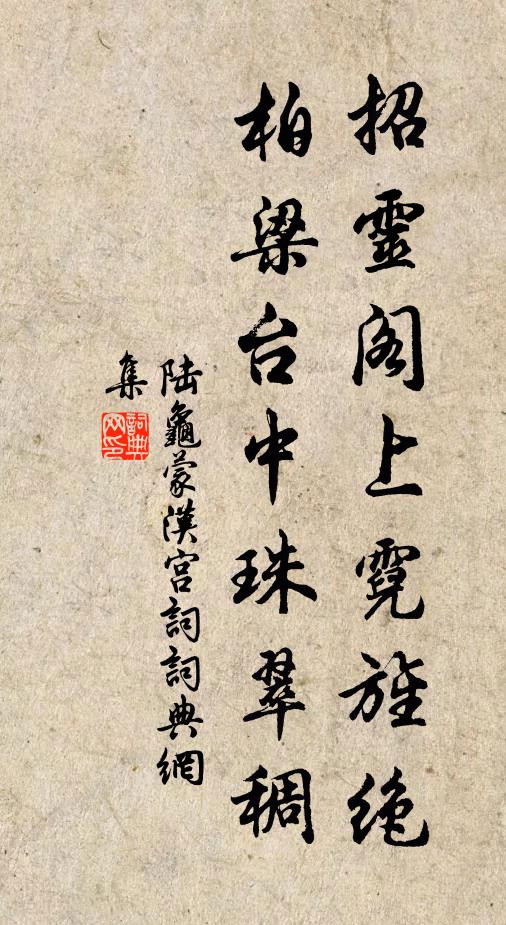 招靈阁上霓旌绝
柏梁台中珠翠稠
陆龜蒙漢宫詞詞典網
集
詞典
网印